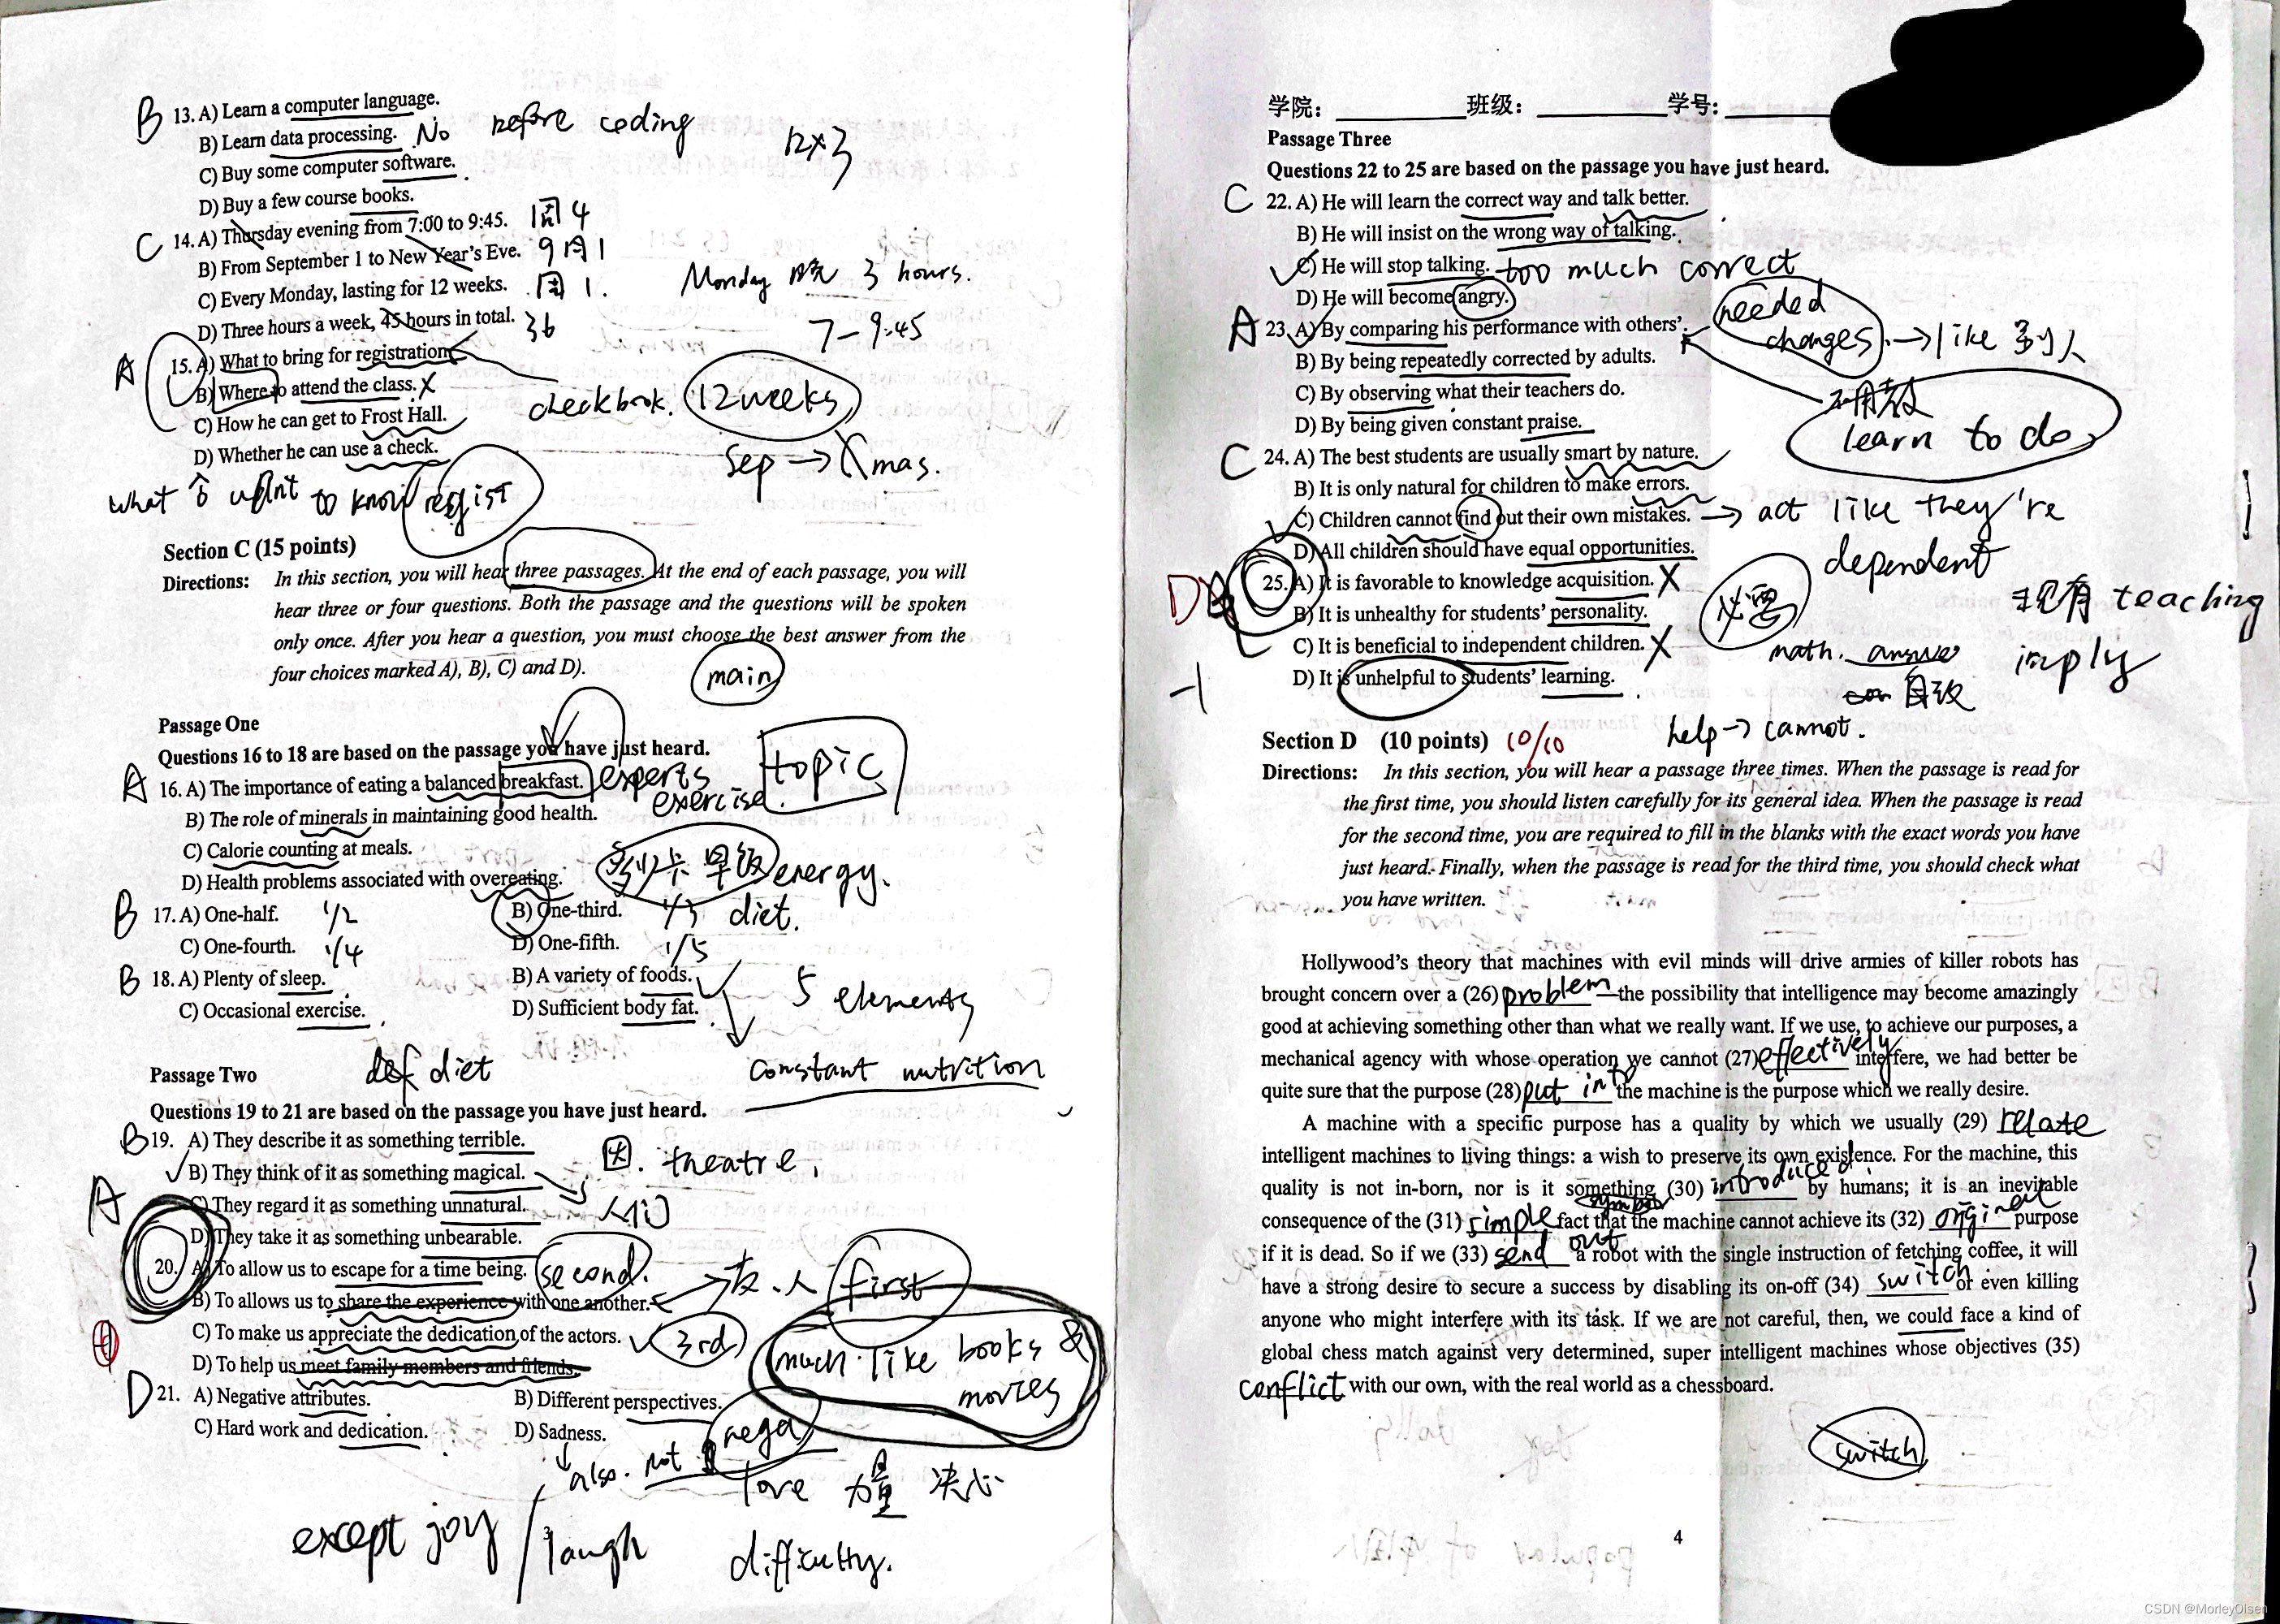 B 13. A) Learn a computer language.
B) Learn data processing. No before coding 12×3
C) Buy some computer software.
D) Buy a few course books.
C 14. A) Thursday evening from 7:00 to 9:45. 周4
B) From September 1 to New Year's Eve. 9月1
C) Every Monday, lasting for 12 weeks. 周1. Monday 晚 3 hours.
D) Three hours a week, 45 hours in total. 36 7-9:45
A 15. A) What to bring for registration
B) Where to attend the class. X checkbook. 12 weeks
C) How he can get to Frost Hall.
D) Whether he can use a check. Sep → Xmas.
What to know regist
Section C (15 points)
Directions: In this section, you will hear three passages. At the end of each passage, you will
hear three or four questions. Both the passage and the questions will be spoken
only once. After you hear a question, you must choose the best answer from the
four choices marked A), B), C) and D).
main
Passage One
Questions 16 to 18 are based on the passage you have just heard.
topic
A 16. A) The importance of eating a balanced breakfast. experts
exercise.
B) The role of minerals in maintaining good health.
C) Calorie counting at meals.
多少卡 早饭 energy.
D) Health problems associated with overeating.
B 17. A) One-half. 1/2 B) One-third. 1/3 diet.
C) One-fourth. 1/4 D) One-fifth. 1/5
B 18. A) Plenty of sleep. B) A variety of foods. 5 elements
C) Occasional exercise. D) Sufficient body fat.
def diet constant nutrition
Passage Two
Questions 19 to 21 are based on the passage you have just heard.
B 19. A) They describe it as something terrible.
B) They think of it as something magical. 因. theatre.
C) They regard it as something unnatural. 人们
D) They take it as something unbearable.
A 20. A) To allow us to escape for a time being. second.
B) To allows us to share the experience with one another. → 友.人 first
C) To make us appreciate the dedication of the actors. 3rd
much like books & movies
D) To help us meet family members and friends.
D 21. A) Negative attributes. B) Different perspectives.
C) Hard work and dedication. D) Sadness. nega
also. not
love 力量 决心
except joy / laugh difficulty.
学院: 班级: 学号:
Passage Three
Questions 22 to 25 are based on the passage you have just heard.
C 22. A) He will learn the correct way and talk better.
B) He will insist on the wrong way of talking.
C) He will stop talking. too much correct
D) He will become angry.
needed changes → like 别人
A 23. A) By comparing his performance with others'.
B) By being repeatedly corrected by adults.
C) By observing what their teachers do.
不用教
D) By being given constant praise.
learn to do
C 24. A) The best students are usually smart by nature.
B) It is only natural for children to make errors.
C) Children cannot find out their own mistakes. → act like they're
dependent
D) All children should have equal opportunities.
D 25. A) It is favorable to knowledge acquisition. X
必需 现有 teaching
B) It is unhealthy for students' personality.
C) It is beneficial to independent children. X
math. answer imply
D) It is unhelpful to students' learning.
-1
自改
help → cannot.
Section D (10 points) 10/10
Directions: In this section, you will hear a passage three times. When the passage is read for
the first time, you should listen carefully for its general idea. When the passage is read
for the second time, you are required to fill in the blanks with the exact words you have
just heard. Finally, when the passage is read for the third time, you should check what
you have written.
Hollywood's theory that machines with evil minds will drive armies of killer robots has
brought concern over a (26) problem—the possibility that intelligence may become amazingly
good at achieving something other than what we really want. If we use, to achieve our purposes, a
mechanical agency with whose operation we cannot (27) effectively interfere, we had better be
quite sure that the purpose (28) put into the machine is the purpose which we really desire.
A machine with a specific purpose has a quality by which we usually (29) relate
intelligent machines to living things: a wish to preserve its own existence. For the machine, this
quality is not in-born, nor is it something (30) introduced by humans; it is an inevitable
consequence of the (31) simple fact that the machine cannot achieve its (32) original purpose
if it is dead. So if we (33) send out a robot with the single instruction of fetching coffee, it will
have a strong desire to secure a success by disabling its on-off (34) switch or even killing
anyone who might interfere with its task. If we are not careful, then, we could face a kind of
global chess match against very determined, super intelligent machines whose objectives (35)
conflict with our own, with the real world as a chessboard.
switch
4
CSDN @MorleyOlsen